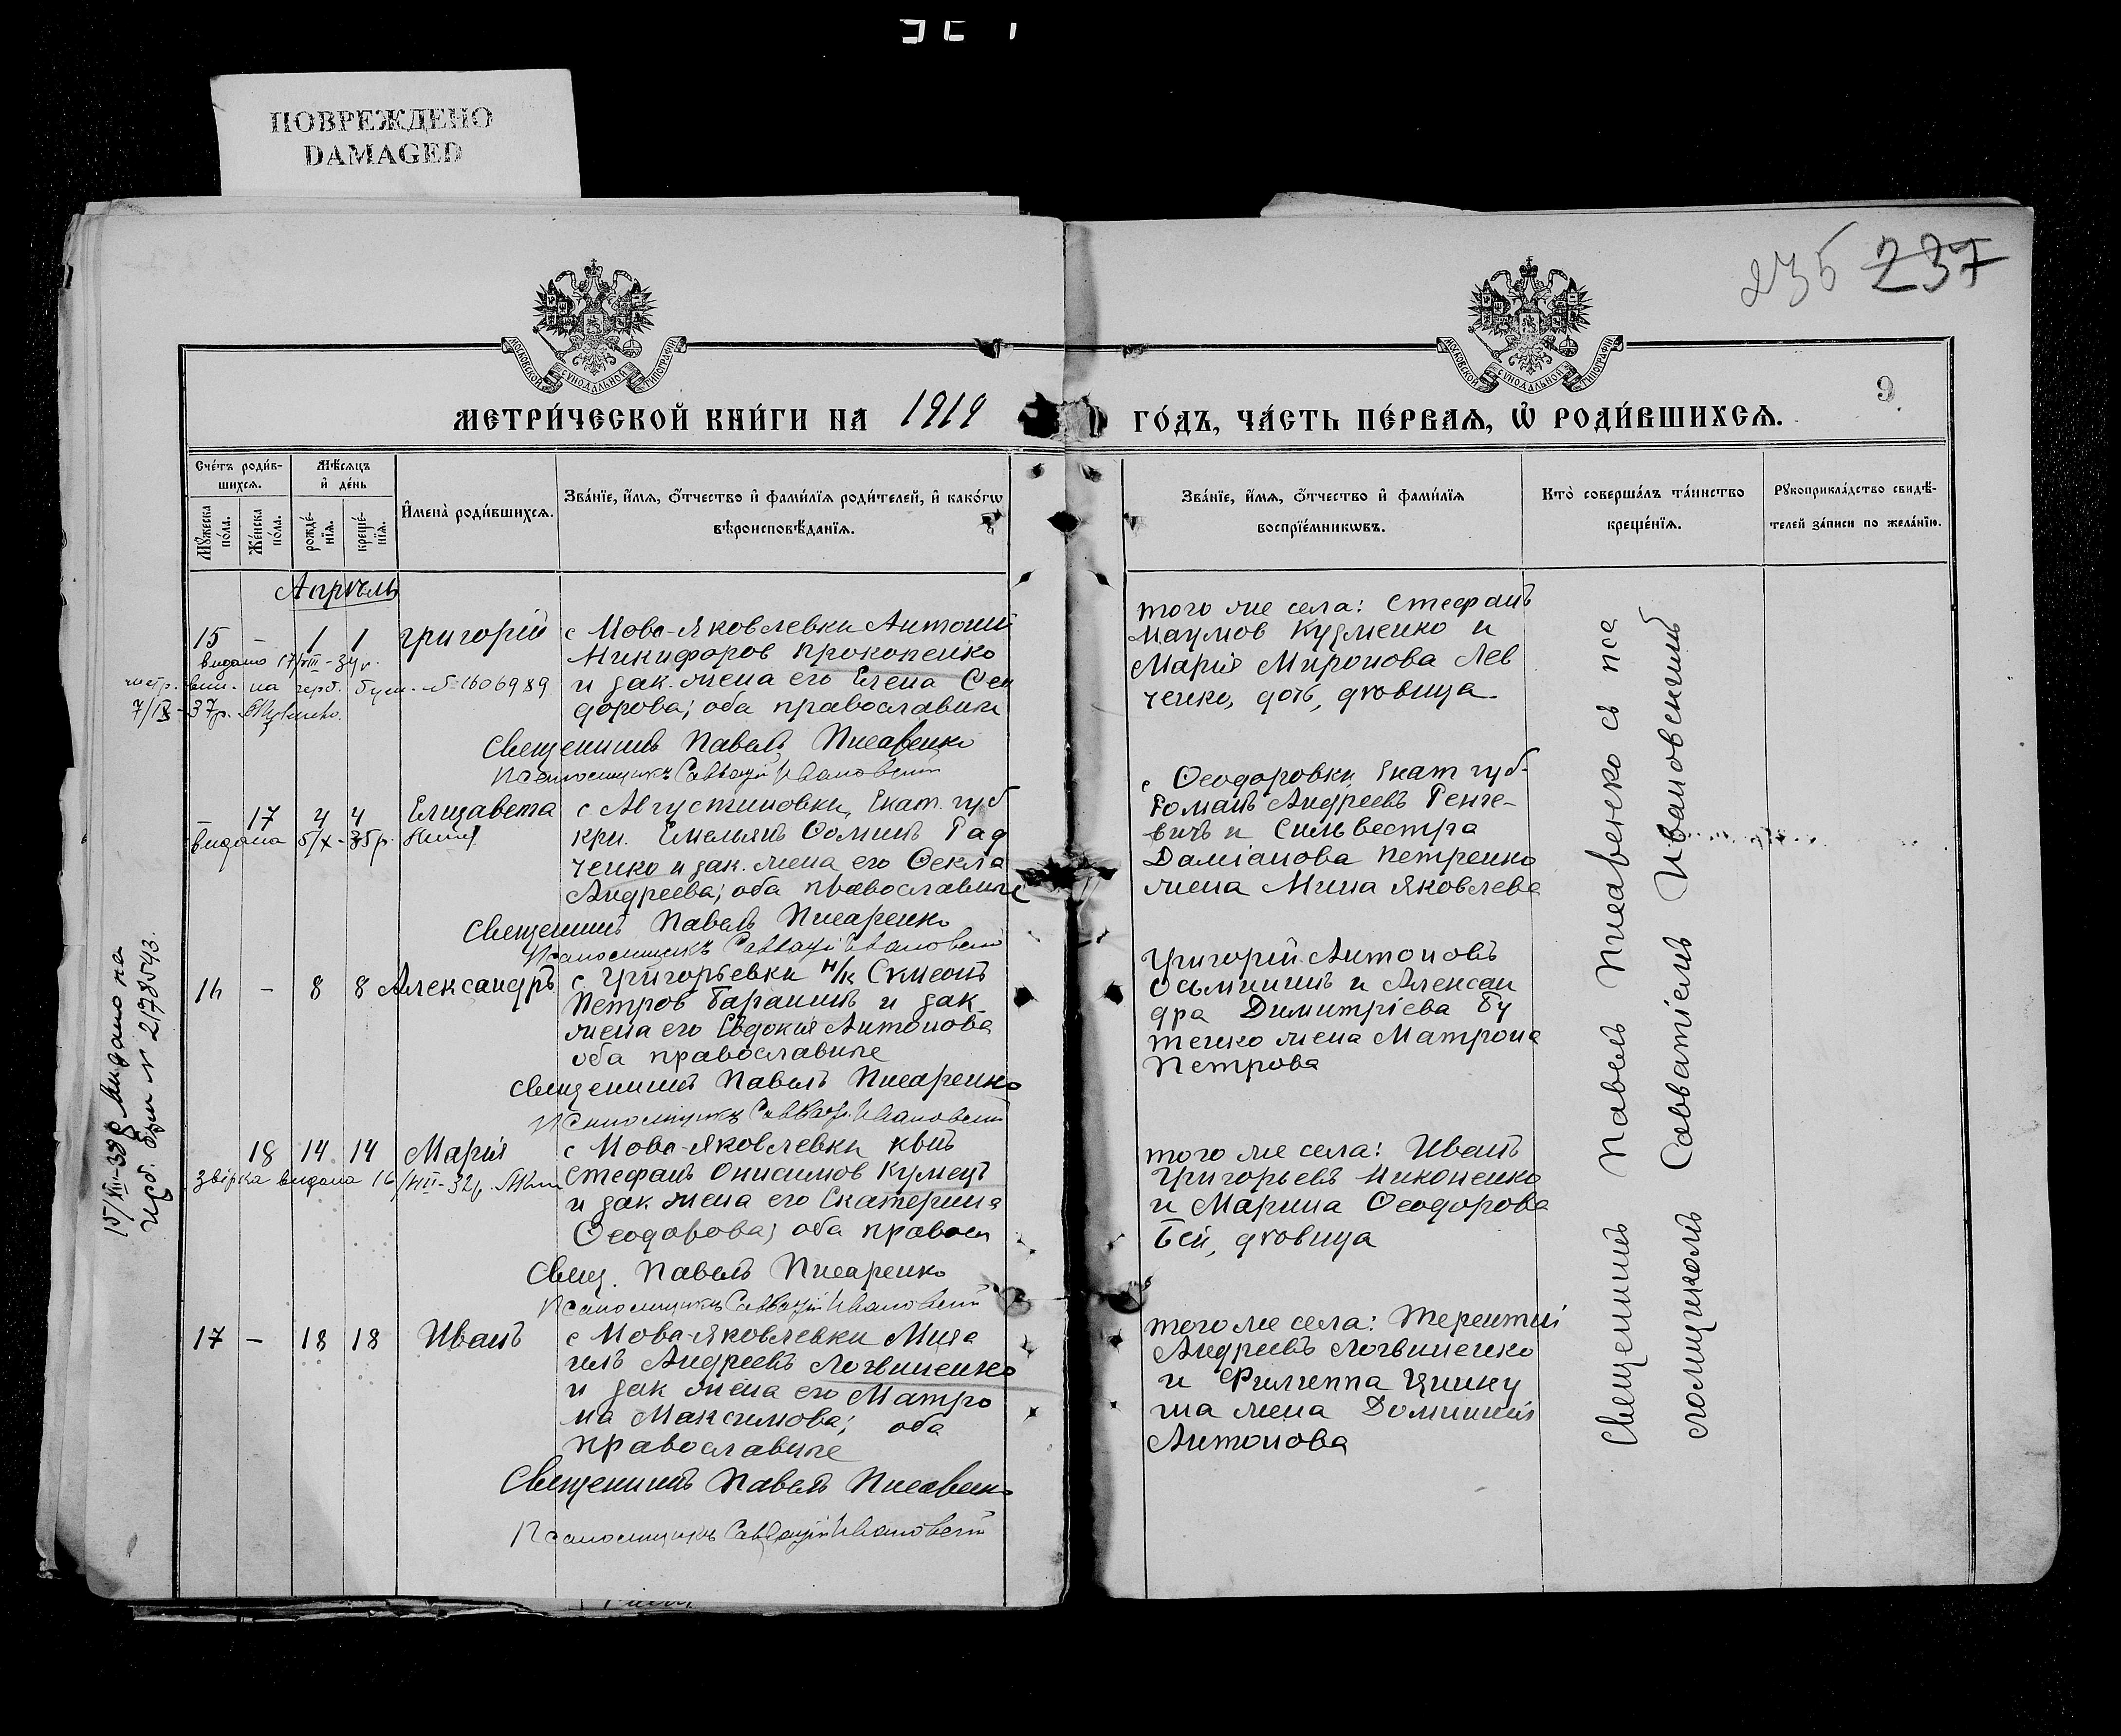 ПОВРЕЖДЕНО
DAMAGED
235 237
9
МОСКОВСКОЙ СѴНОДАЛЬНОЙ ТИПОГРАФІИ
МОСКОВСКОЙ СѴНОДАЛЬНОЙ ТИПОГРАФІИ
МЕТРИ́ЧЕСКОЙ КНИ́ГИ НА 1919
ГО́ДЪ, ЧА́СТЬ ПЕ́РВАѦ, Ѡ҆ РОДИ́ВШИХСѦ.
Сче́тъ роди́в-
шихсѧ.
Мꙋжеска
по́ла.
Же́нска
по́ла.
Мѣ́сѧцъ
и҆ де́нь
рожде́-
нїѧ.
креще́-
нїѧ.
И҆мена̀ роди́вшихсѧ.
Зва́нїе, и҆́мѧ, ѻ҆́тчество и҆ фами́лїѧ роди́телей, и҆ како́гѡ
вѣроисповѣ́данїѧ.
Зва́нїе, и҆́мѧ, ѻ҆́тчество и҆ фами́лїѧ
воспрїе́мникѡвъ.
Кто̀ соверша́лъ та́инство
креще́нїѧ.
Рꙋкоприкла́дство свидѣ́-
телей за́писи по жела́нїю.
Апрѣль
15 - 1 1 Григорій
с Ново-Яковлевки Антоній
Никифоров Прокопенко
и зак. жена его Елена Ѳео
дорова; оба православни
видано 17/VIII-34р.
на герб. бум. № 1606989
7/IX-37р.
Священникъ Павелъ Писаренко
Псаломщикъ Савватій Ивановскій
того же села: Стефанъ
Наумов Кузменко и
Марія Миронова Лев
ченко, дочь, дѣвица.
17 4 4 Елизавета
с Августиновки, Екат. губ
кри. Емельянъ Ѳоминъ Рад
ченко и зак. жена его Ѳекла
Андреева; оба православние
видана 5/X-35р.
Священникъ Павелъ Писаренко
Псаломщикъ Савватій Ивановскій
с Ѳеодоровки Екат губ-
Романъ Андреевъ Генге-
вичъ и Сильвестра
Даміанова Петренко
жена Нина Яковлева
16 - 8 8 Александръ
с Григорьевки н/к Симеонъ
Петров Баранникъ и зак
жена его Евдокія Антонова
оба православние
Священникъ Павелъ Писаренко
Псаломщикъ Савватій Ивановскій
Григорій Антоновъ
Осьмининъ и Алексан
дра Димитріева Бу
тенко жена Матрона
Петрова
15/XII-38р видано на
герб. бум № 2178543.
18 14 14 Марія
с Ново-Яковлевки квит
Стефанъ Онисимов Кумецъ
и зак жена его Екатерина
Ѳеодорова; оба правосл
видана 16/VIII-32р.
Свящ. Павелъ Писаренко
Псаломщикъ Савватій Ивановскій
того же села: Иванъ
Григорьевъ Никоненко
и Марина Ѳеодорова
Бей, дѣвица
17 - 18 18 Иванъ
с Ново-Яковлевки Миха
илъ Андреевъ Логвиненко
и зак жена его Матро
на Максимова; оба
православние
Священникъ Павелъ Писаренко
Псаломщикъ Савватій Ивановскій
того же села: Терентий
Андреевъ Логвиненко
и Филиппа Цинку
ша жена Домникія
Антонова
Священникъ Павелъ Писаренко съ пса
ломщикомъ Савватіемъ Ивановскимъ